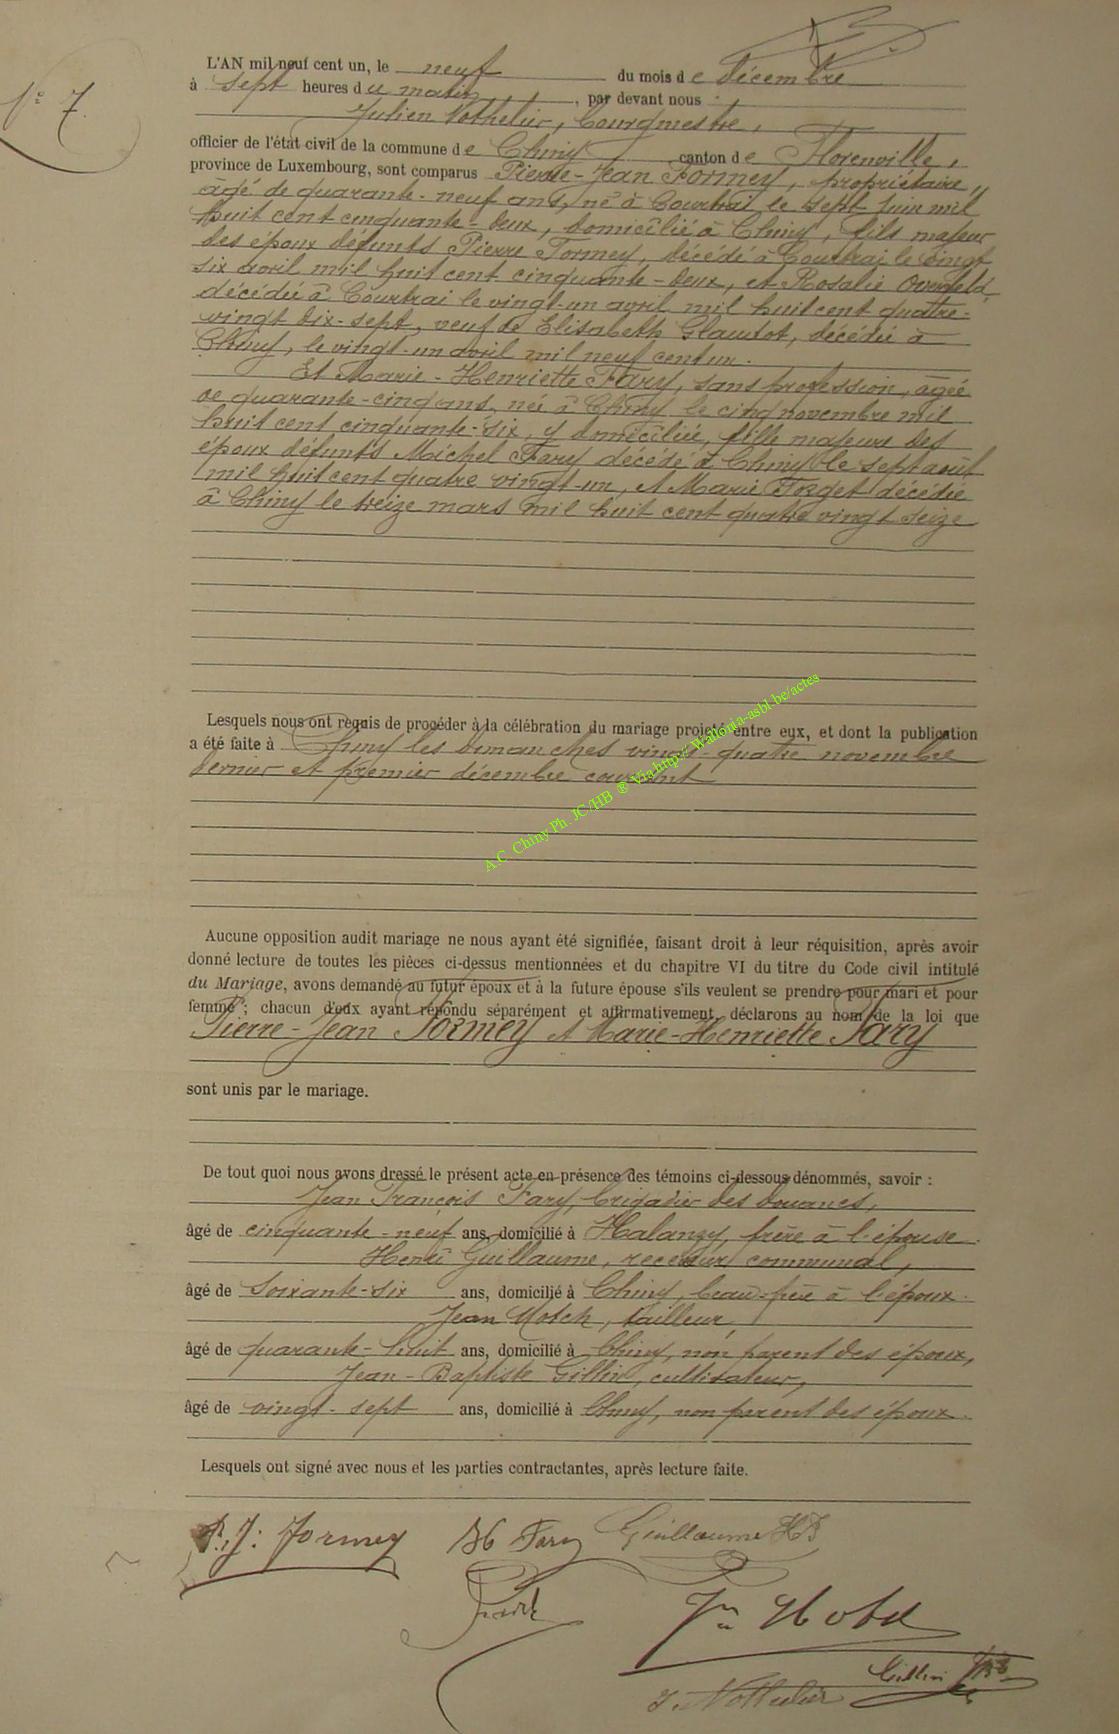 N° 7.
L'AN mil neuf cent un, le neuf du mois de décembre
à sept heures du matin, par devant nous
Julien Nothelier, bourgmestre,
officier de l'état civil de la commune de Chiny canton de Florenville,
province de Luxembourg, sont comparus Pierre-Jean Formey, propriétaire,
âgé de quarante-neuf ans, né à Courtrai le sept juin mil
huit cent cinquante-deux, domicilié à Chiny, fils majeur
des époux défunts Pierre Formey, décédé à Courtrai le vingt
six avril mil huit cent cinquante-deux, et Rosalie
décédée à Courtrai le vingt-un avril mil huit cent quatre-
vingt dix-sept, veuf de Elisabeth décédée à
Chiny, le vingt-un avril mil neuf cent un.
Et Marie-Henriette Fary, sans profession, âgée
de quarante-cinq ans, née à Chiny le cinq novembre mil
huit cent cinquante-six, y domiciliée, fille majeure des
époux défunts Michel Fary décédé à Chiny le sept août
mil huit cent quatre vingt-un, et Marie Forget décédée
à Chiny le treize mars mil huit cent quatre vingt seize
Lesquels nous ont requis de procéder à la célébration du mariage projeté entre eux, et dont la publication
a été faite à Chiny les dimanches vingt-quatre novembre
dernier et premier décembre courant
A.C. Chiny Ph. JC/HB ® Via http://Wallonia-asbl.be/actes
Aucune opposition audit mariage ne nous ayant été signifiée, faisant droit à leur réquisition, après avoir
donné lecture de toutes les pièces ci-dessus mentionnées et du chapitre VI du titre du Code civil intitulé
du Mariage, avons demandé au futur époux et à la future épouse s'ils veulent se prendre pour mari et pour
femme ; chacun d'eux ayant répondu séparément et affirmativement, déclarons au nom de la loi que
Pierre-Jean Formey et Marie-Henriette Fary
sont unis par le mariage.
De tout quoi nous avons dressé le présent acte en présence des témoins ci-dessous dénommés, savoir :
Jean François Fary, brigadier des douanes,
âgé de cinquante-neuf ans, domicilié à Halanzy, frère à l'épouse.
Henri Guillaume, receveur communal,
âgé de soixante-six ans, domicilié à Chiny, beau-père à l'époux.
Jean tailleur,
âgé de quarante-huit ans, domicilié à Chiny, non parent des époux,
Jean-Baptiste Gillin, cultivateur,
âgé de vingt-sept ans, domicilié à Chiny, non parent des époux.
Lesquels ont signé avec nous et les parties contractantes, après lecture faite.
P. J: Formey MH Fary Guillaume
Gillin
J. Nothelier